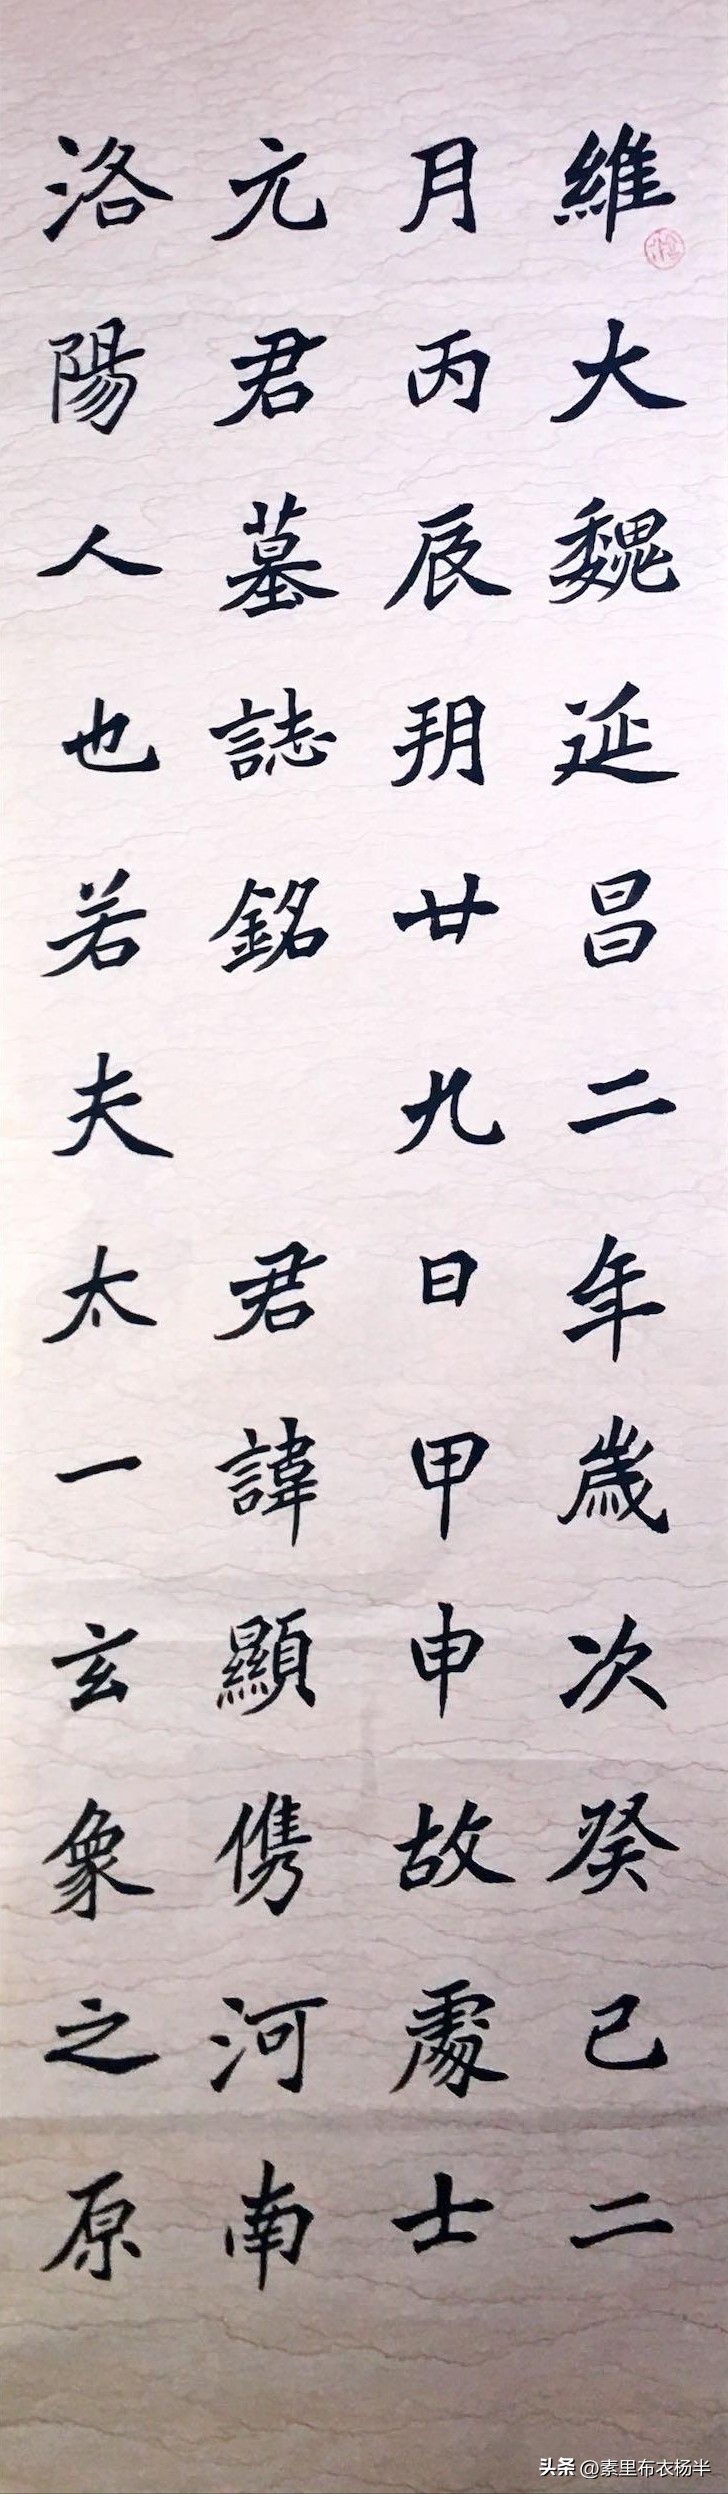 維大魏延昌二年歲次癸已二
月丙辰玥廿九日甲申故處士
元君墓誌銘 君諱顯儁河南
洛陽人也若夫太一玄象之原
头条 @素里布衣杨半